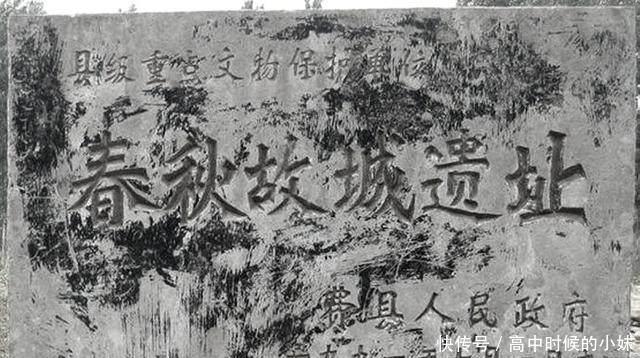 县级重点文物保护单位
春秋故城遗址
费县人民政府
快传号／高中时候的小妹